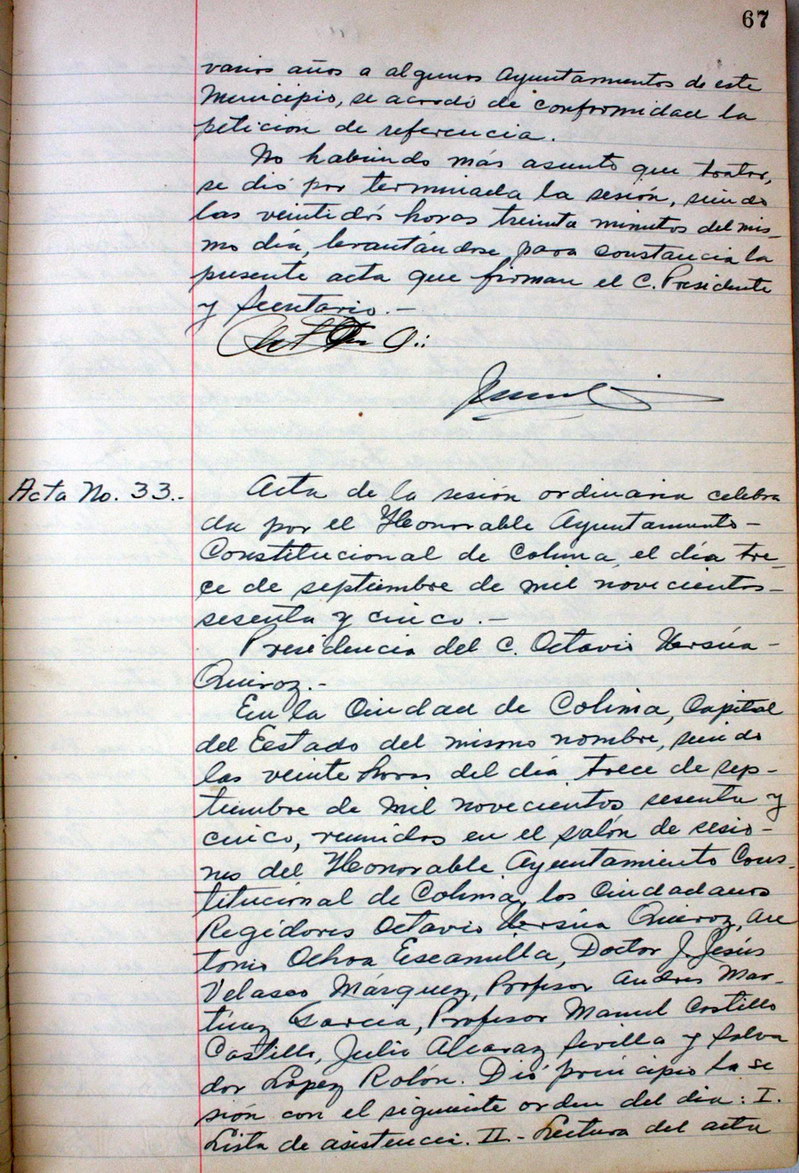 67
varios años a algunos Ayuntamientos de este
Municipio, se acordó de conformidad la
petición de referencia.
No habiendo más asunto que tratar,
se dió por terminada la sesión, siendo
las veintidós horas treinta minutos del mis-
mo día, levantándose para constancia la
presente acta que firman el C. Presidente
y Secretario.-
Acta No. 33.-
Acta de la sesión ordinaria celebra
da por el Honorable Ayuntamiento-
Constitucional de Colima, el día tre-
ce de septiembre de mil novecientos-
sesenta y cinco.-
Presidencia del C. Octavio Ursúa-
Quiroz.-
En la Ciudad de Colima, Capital
del Eestado del mismo nombre, siendo
las veinte horas del día trece de sep-
tiembre de mil novecientos sesenta y
cinco, reunidos en el salón de sesio-
nes del Honorable Ayuntamiento Cons-
titucional de Colima, los Ciudadanos
Regidores Octavio Ursúa Quiroz, An
tonio Ochoa Escamilla, Doctor J. Jesús
Velasco Márquez, Profesor Andrés Mar-
tínez García, Profesor Manuel Castillo
Castillo, Julio Alcaraz Sevilla y Salva
dor López Rolón. Dió principio la se
sión con el siguiente orden del día: I.
Lista de asistencia. II- Lectura del acta